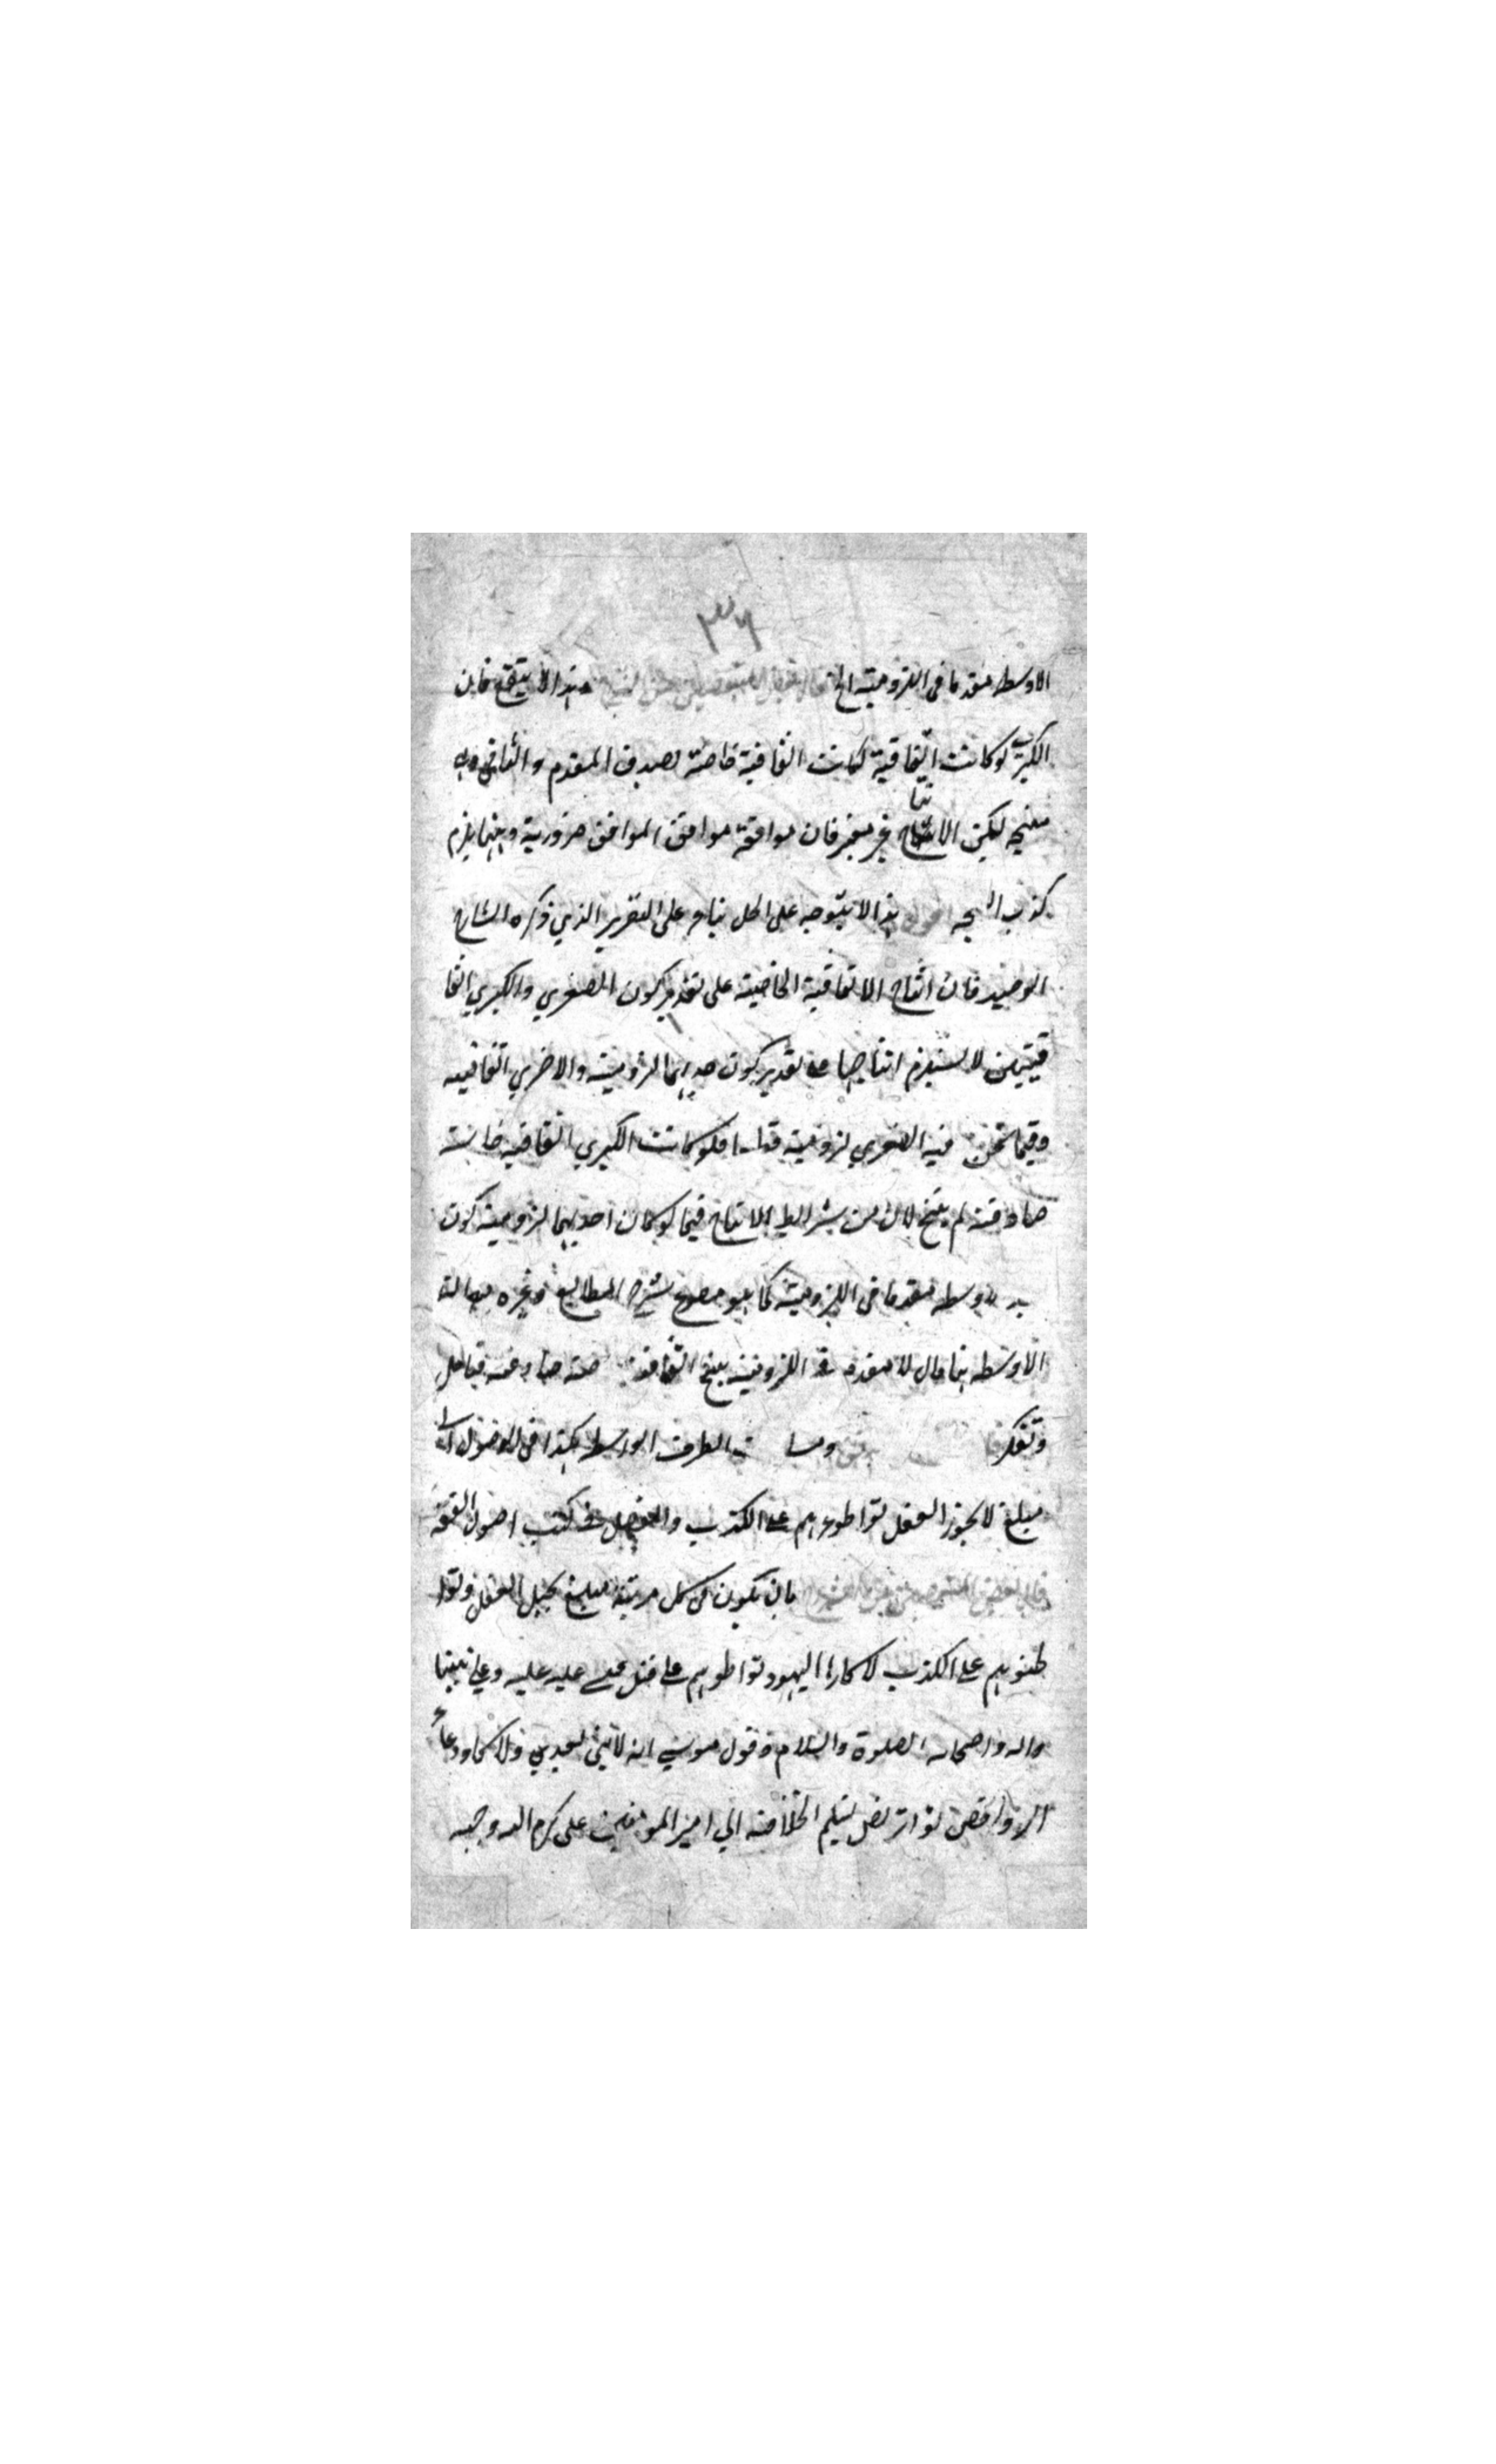 ٣٦
الاوسط مقدما في اللزومية الخ قال بعض المتوضين من الشراح هذا لا ينفع فان
الكبرى لو كانت اتفاقية لكانت اتفاقية خاصة لصدق المقدم والتالي وهي
منتجة لكن الانتاج غير معتبر فان موافقة موافق الموافق ضرورية وحينئذ يلزم
كذب النتيجة اقول هذا لا يتوجه على الحل بناء على التقرير الذي ذكره الشارح
فان انتاج الاتفاقية الخاصة على تقدير كون الصغرى والكبرى اتفا
قيتين لا يستلزم انتاجها على تقدير كون احديهما لزومية والاخرى اتفاقية
وفيما نحن فيه الصغرى لزومية فلو كانت الكبرى اتفاقية خاصة
صادقة لم ينتج لان من شرائط الانتاج فيما لو كان احديهما لزومية كون
الاوسط مقدما في اللزومية كما هو مصرح شرح المطالع وغيره
الاوسط تال لا مقدم في اللزومية ينتج اتفاقية
وتفكر الطرف الواسط هكذا في الاصول
مبلغ لا يجوز العقل تواطوءهم على الكذب والتفصيل في كتب اصول الفقه
قال بعض بان يكون في كل مرتبة مبلغ يحيل العقل تواطو
طئوهم على الكذب لا كاراء اليهود تواطوهم على قتل عيسى عليه وعلى نبينا
واله واصحابه الصلوة والسلام وقول موسى انه لا نبي بعدي ولا كادعاء
الروافض تواتر نص تسليم الخلافة الى امير المومنين علي كرم الله وجهه